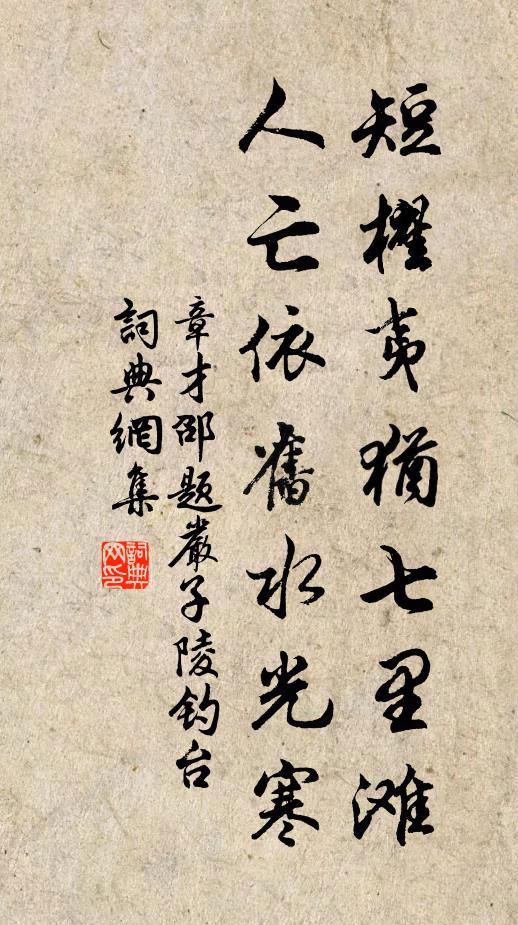 短櫂夷猶七里滩
人亡依舊水光寒
章才邵题嚴子陵釣台
詞典網集
詞典網印